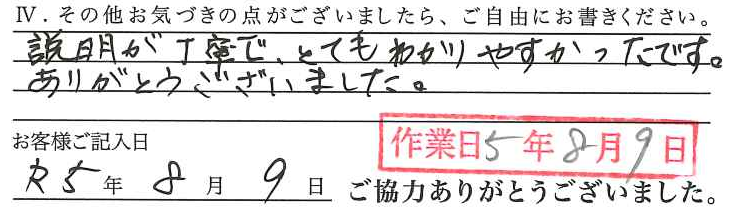 Ⅳ．その他お気づきの点がございましたら、ご自由にお書きください。
説明が丁寧で、とてもわかりやすかったです。
ありがとうございました。
お客様ご記入日
作業日5年8月9日
R5年8月9日
ご協力ありがとうございました。